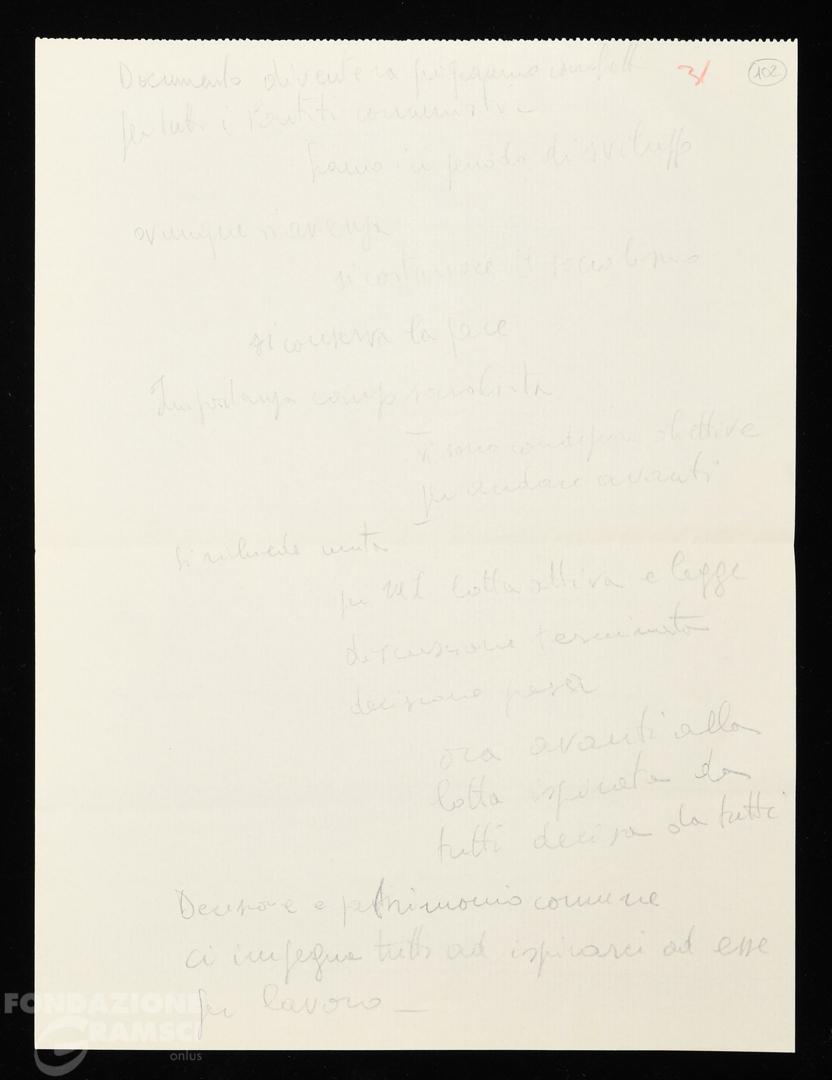 3/
102
Documento diventerà programma
per tutti i partiti comunisti –
siamo in periodo di sviluppo
ovunque si avanza
si costruisce il socialismo
si conserva la pace
Importanza camp socialista
Vi sono condizioni obiettive
per andare avanti
Si richiede unità
per ML lotta attiva e legge
discussione terminata
decisione presa
ora avanti alla
lotta ispirata da
tutti decisa da tutti
Decisione e patrimonio comune
ci impegna tutti ad ispirarci ad esse
per lavoro –
FONDAZIONE
GRAMSCI
onlus